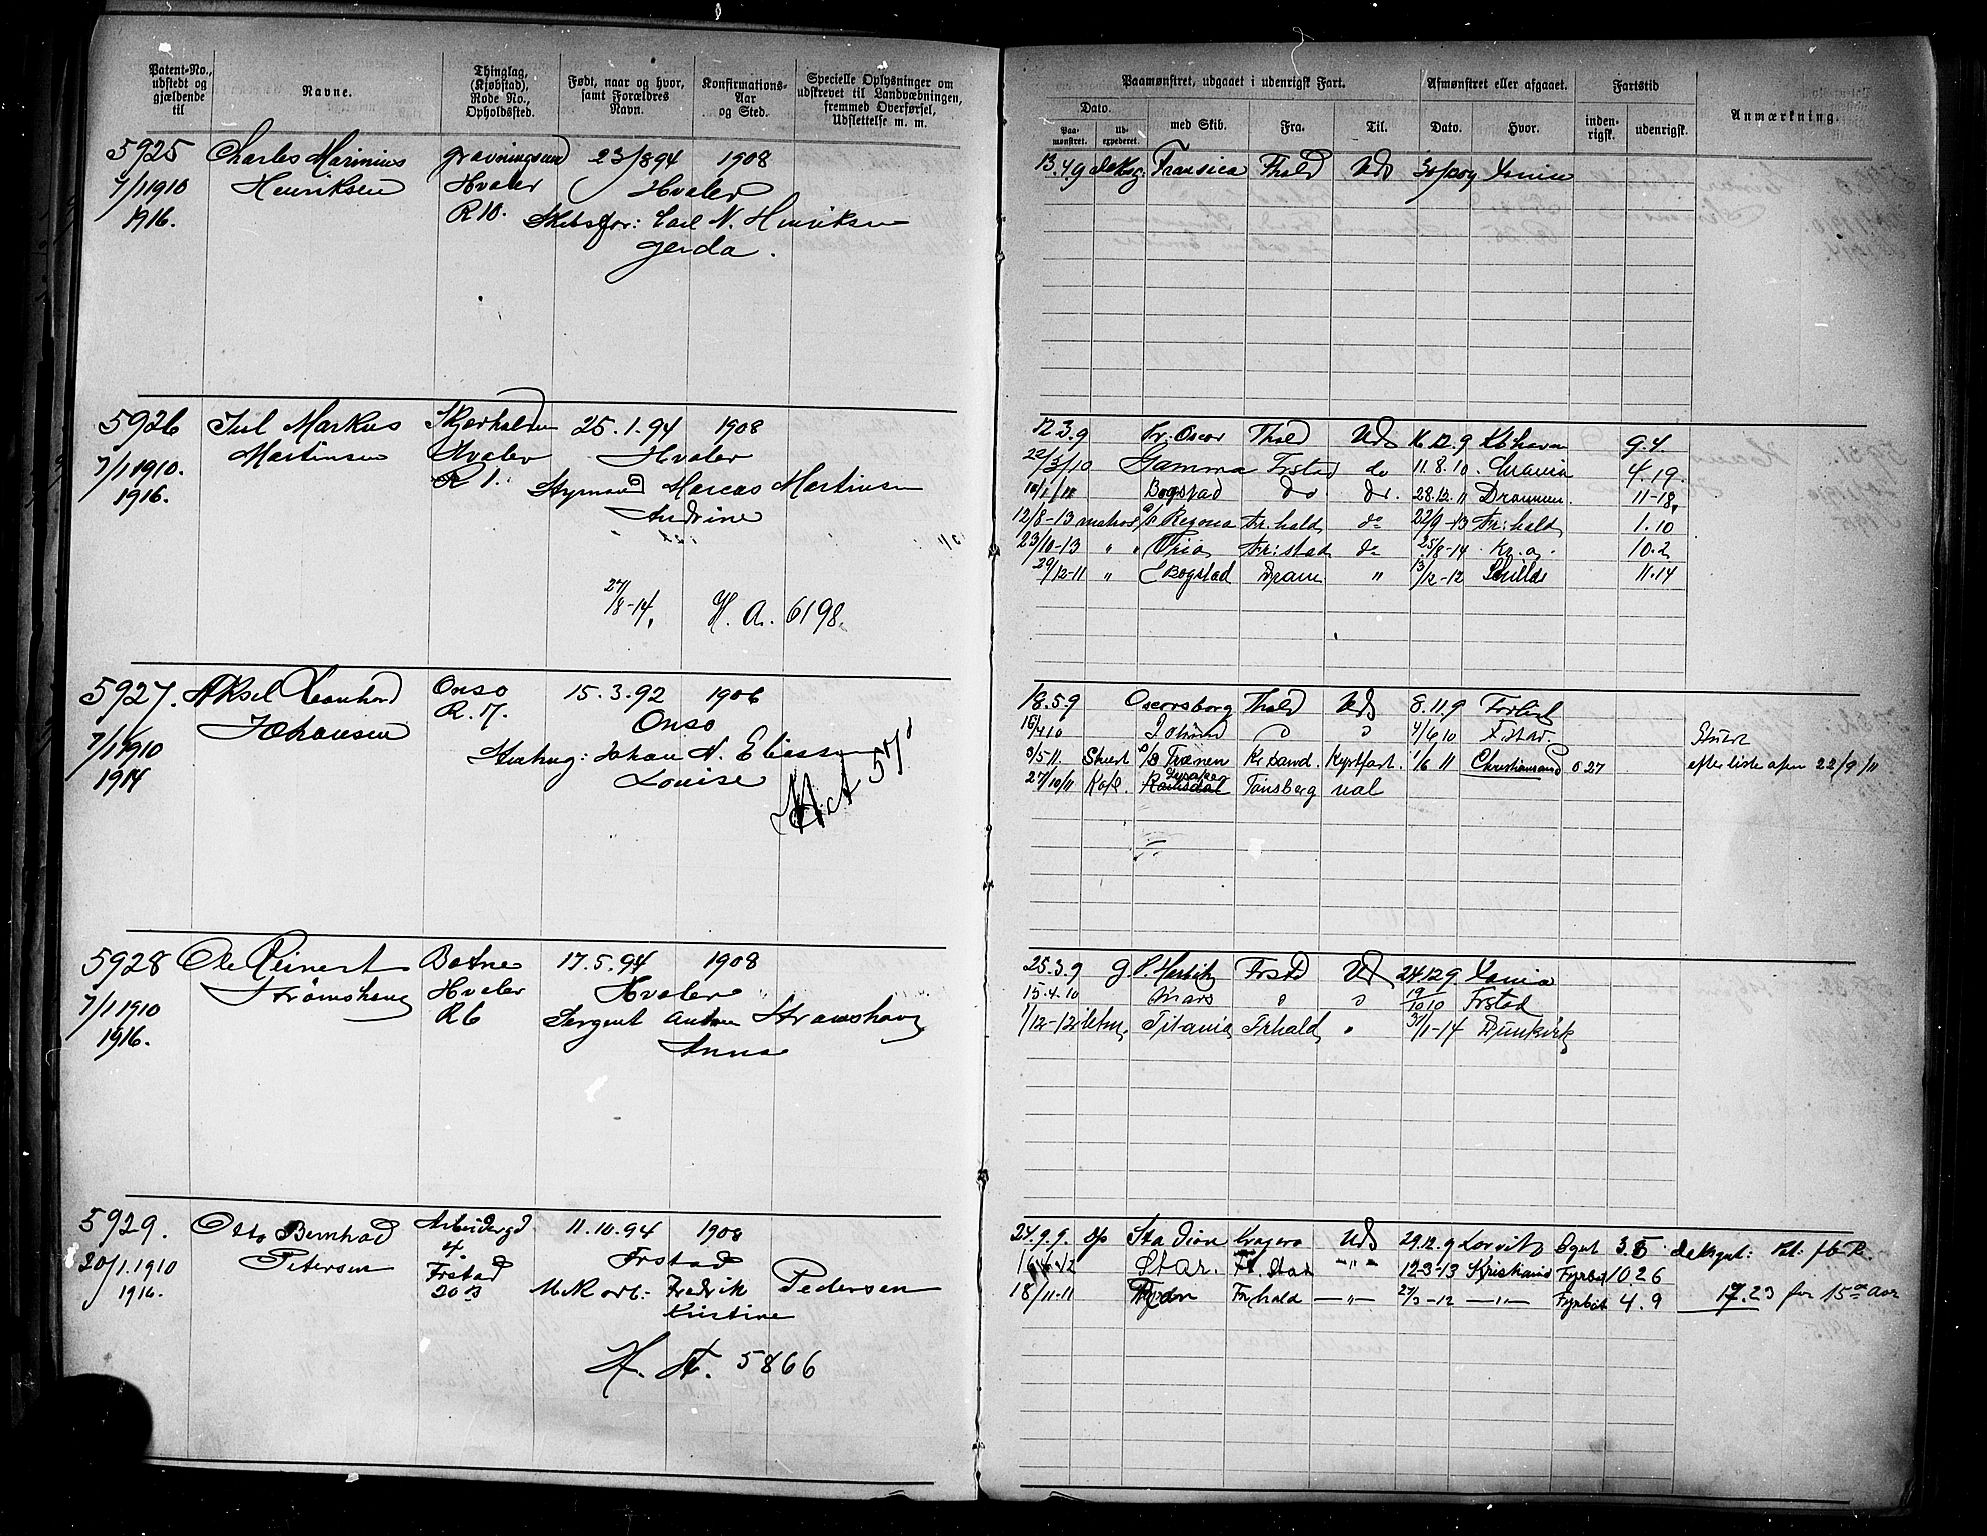 Patent-No., udstedt og gjældende til
Navne.
Thinglag, (Kjøbstad), Rode No., Opholdssted.
Født, naar og hvor, samt Forældres Navn.
Konfirmations-Aar og Sted.
Specielle Oplysninger om udskrevet til Landværnbningen, fremmed Overførsel, Udslettelse m. m.
Paamønstret, udgaaet i udenrigsk Fart.
Afmønstret eller afgaaet.
Fartstid
Anmærkning.
Dato.
Paamønstret.
Udexpederet.
med Skib.
Fra.
Til.
Dato.
Hvor.
indenrigsk.
udenrigsk.
5925 Charles Marinius Gravningsund 23/8 94 1908
7/1 1910 Henriksen Hvaler Hvaler
1916. R 10. Skibsfør: Carl N. Henriksen
Gerda.
13.4.9 Fransica Fhald Uds 30/10 9 Xania
5926 Juel Markus Skjærhalden 25.1.94 1908
7/1 1910. Martinsen Hvaler Hvaler
1916. R 1. Styrmand Marcus Martinsen
Andrine
27/8-14. H. A. 6198.
12.3.9 Fr. Oscar Fhald Uds 16.12.9 Kbhavn 9.4.
22/3/10 Gamma Frstad do 11.8.10. 4.19.
10/1/11 Bogstad do do. 28.12.11 Drammen. 11-18.
12/8-13 matros S/S Regona Fr:hald do 22/9-13 Fr:hald 1.10
23/10-13 " " Fr:stad do 25/8-14 Kr.a. 10.2
29/12-11 " Bogstad Dram " 13/12-12 11.14
5927. Aksel Leonhard Onsø 15.3.92 1906
7/1 1910 Johansen R. 7. Onsø
1914 Stenhug: Johan N. Eliassen
Louise
H. A 57
18.5.9 Oscarsborg Fhald Uds 8.11.9 Forlist
15/4 10 " " 4/6 10 F.stad.
3/5 11. Stuert S/S Tranen Kr sand. Kystfart. 1/6 11 Christiansand 0 27
Stuert
efter liste afm 22/9/11
27/10/11 Kok. Ramsdal Tønsberg ual
5928 Ole Reinert Botne 17.5.94 1908
7/1 1910 Strømshaug Hvaler Hvaler
1916. R 6 Sergent Anton Strømshaug
Anna
25.3.9 Frstd Ud 24.12.9 Xania
15.4.10 Mars " " 19/10 10 Frstad
1/12-12 letm. Titania Frhald " 3/11-14 Dunkirk
5929. Otto Bernhad Arbeidergd. 11.10.94 1908
20/1.1910 Petersen 4. Frstad
1916. Frstad M.R arb. Fredrik Pedersen
20 B Kristine
H. A. 5866
24.9.9. Stadion Kragerø Uds 29.12.9 Larvik 3.5
16/6 12 Star. Fr. Stad —"— 12-3-13 Kristiania Fyrbøt 10 26
18/11-11 Frhald —"— 27/3-12 —"— Fyrbøt 4.9
17.23 for 15de Aar